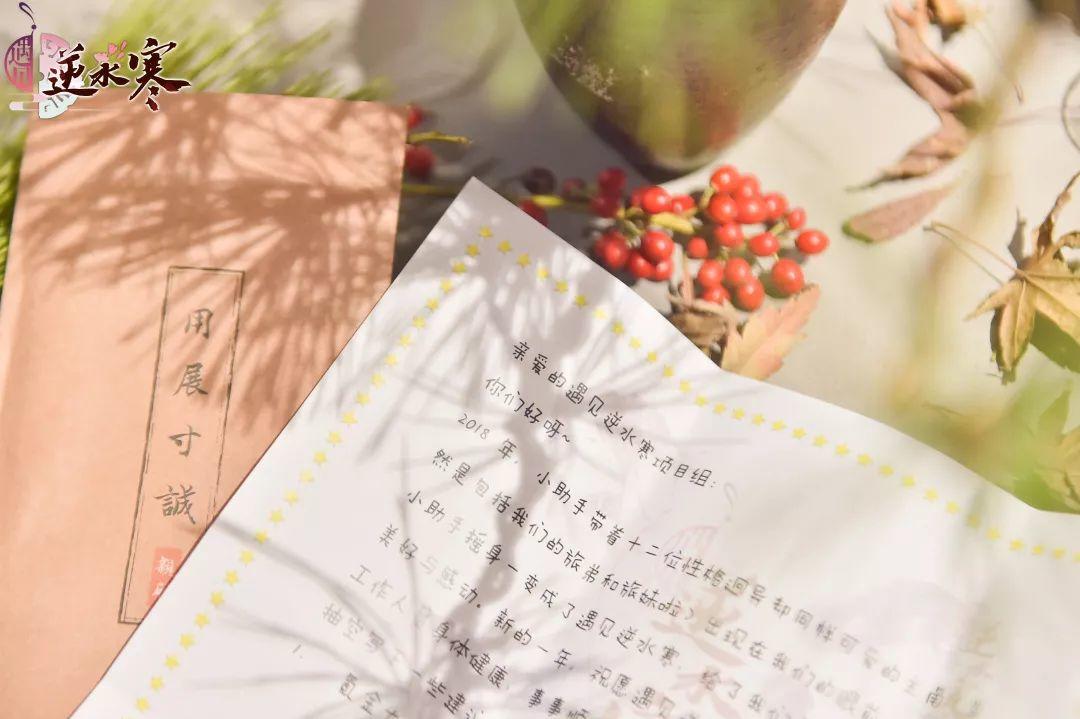 遇见
逆水寒
用展寸誠
亲爱的遇见逆水寒项目组：
你们好呀~
2018年，小助手带着十二位性格迥异却同样可爱的主角
然是包括我们的旅弟和旅妹啦）出现在我们的眼前
小助手摇身一变成了遇见逆水寒，给了我们
美好与感动。新的一年，祝愿遇见
工作人员身体健康，事事顺
抽空写了一些建议